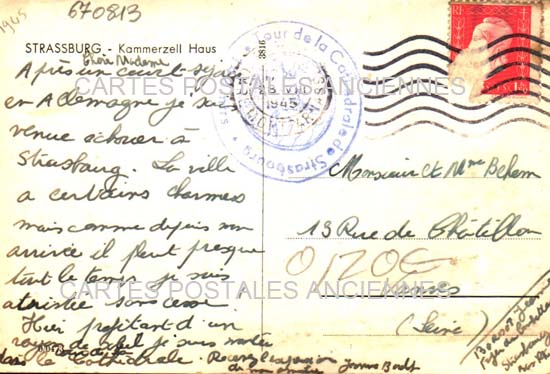 1945
670813
STRASSBURG - Kammerzell Haus
Chère Madame
Après un court séjour
en Allemagne je suis
venue échouer à
Strasbourg. La ville
a certains charmes
mais comme depuis mon
arrivée il pleut presque
tout le temps je suis
attristée sans cesse.
Hier profitant d'un
rayon de soleil je suis montée
dans la Cathédrale. Recevez l'expression
de mon
3816
Tour de la Cathédrale de Strasbourg
1945
RF
Monsieur et Mme Behem
13 Rue de Châtillon
(Seine)
0120E
Strasbourg
CARTES POSTALES ANCIENNES
CARTES POSTALES ANCIENNES